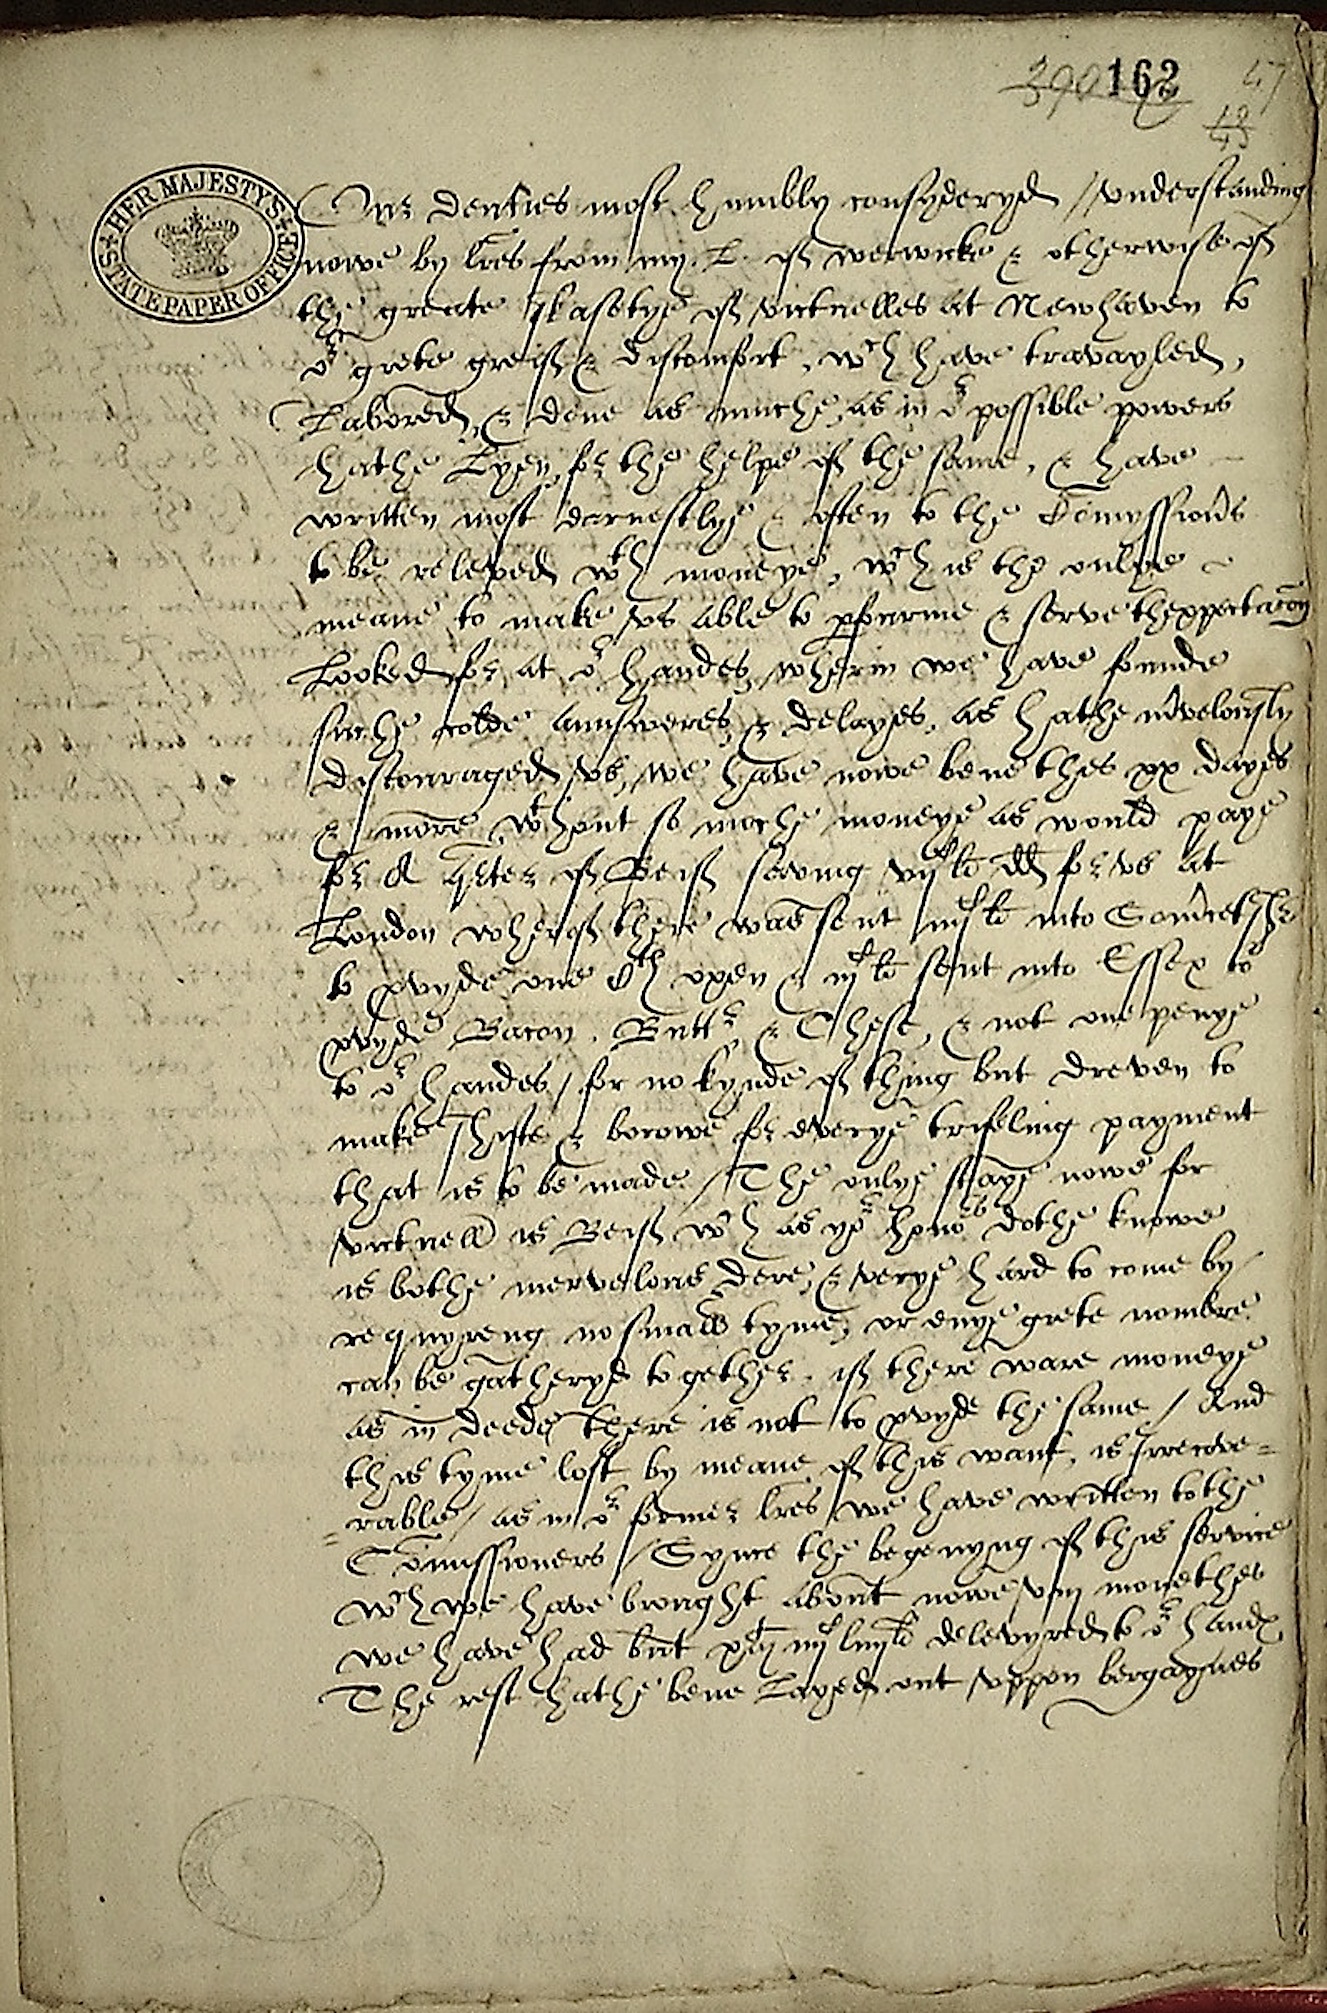 390 162 47
48
HER MAJESTYS STATE PAPER OFFICE
Our dewties most humbly consyderyd // understanding
nowe by lres from my L. of werwicke & otherwise of
the greate skasetye of victuelles at Newhaven to
or grete greif & discomfort, wch have travayled,
Labored, & done as muche as in or possible powers
hathe Lyen for the helpe of the same, & have
written most earnestlye & often to the Comyssionrs
to be releved wth moneye, wch is the onlye
meane to make us able to pfourme & serve thexpectacon
Looked for at or handes, wherin we have founde
suche colde aunsweres, & delayes, as hathe mrvelously
discouraged us, we have nowe bene thes xx dayes
& more wthout so moche moneye as would paye
for A qrter of Beif saving vijc li dd for us at
London wherof there was sent iiijc li into Somrsetshr
to pvyde one Cth oxen & iijc li sent into Essex to
pvyde Bacon, Buttr, & Chese, & not one penye
to or handes / for no kynde of thing but dreven to
make shifte & borowe for everye trifeling payment
that is to be made / The onlye staye nowe for
victuell is Beif wch as yor honors dothe knowe
is bothe mervelous dere, & verye hard to come by
requyreng no small tyme, or enye grete nombre
can be gatheryd together, if there ware moneye
as in deede there is not to pvyde the same / And
this tyme lost by meane of this want, is Irrecove=
=rable / as in or former lres we have written to the
Comissioners / Synce the begenyng of this service
wch we have brought about nowe viij monethes
we have had but delevyred to or hands
The rest hathe bene Layed out uppon bergaynes